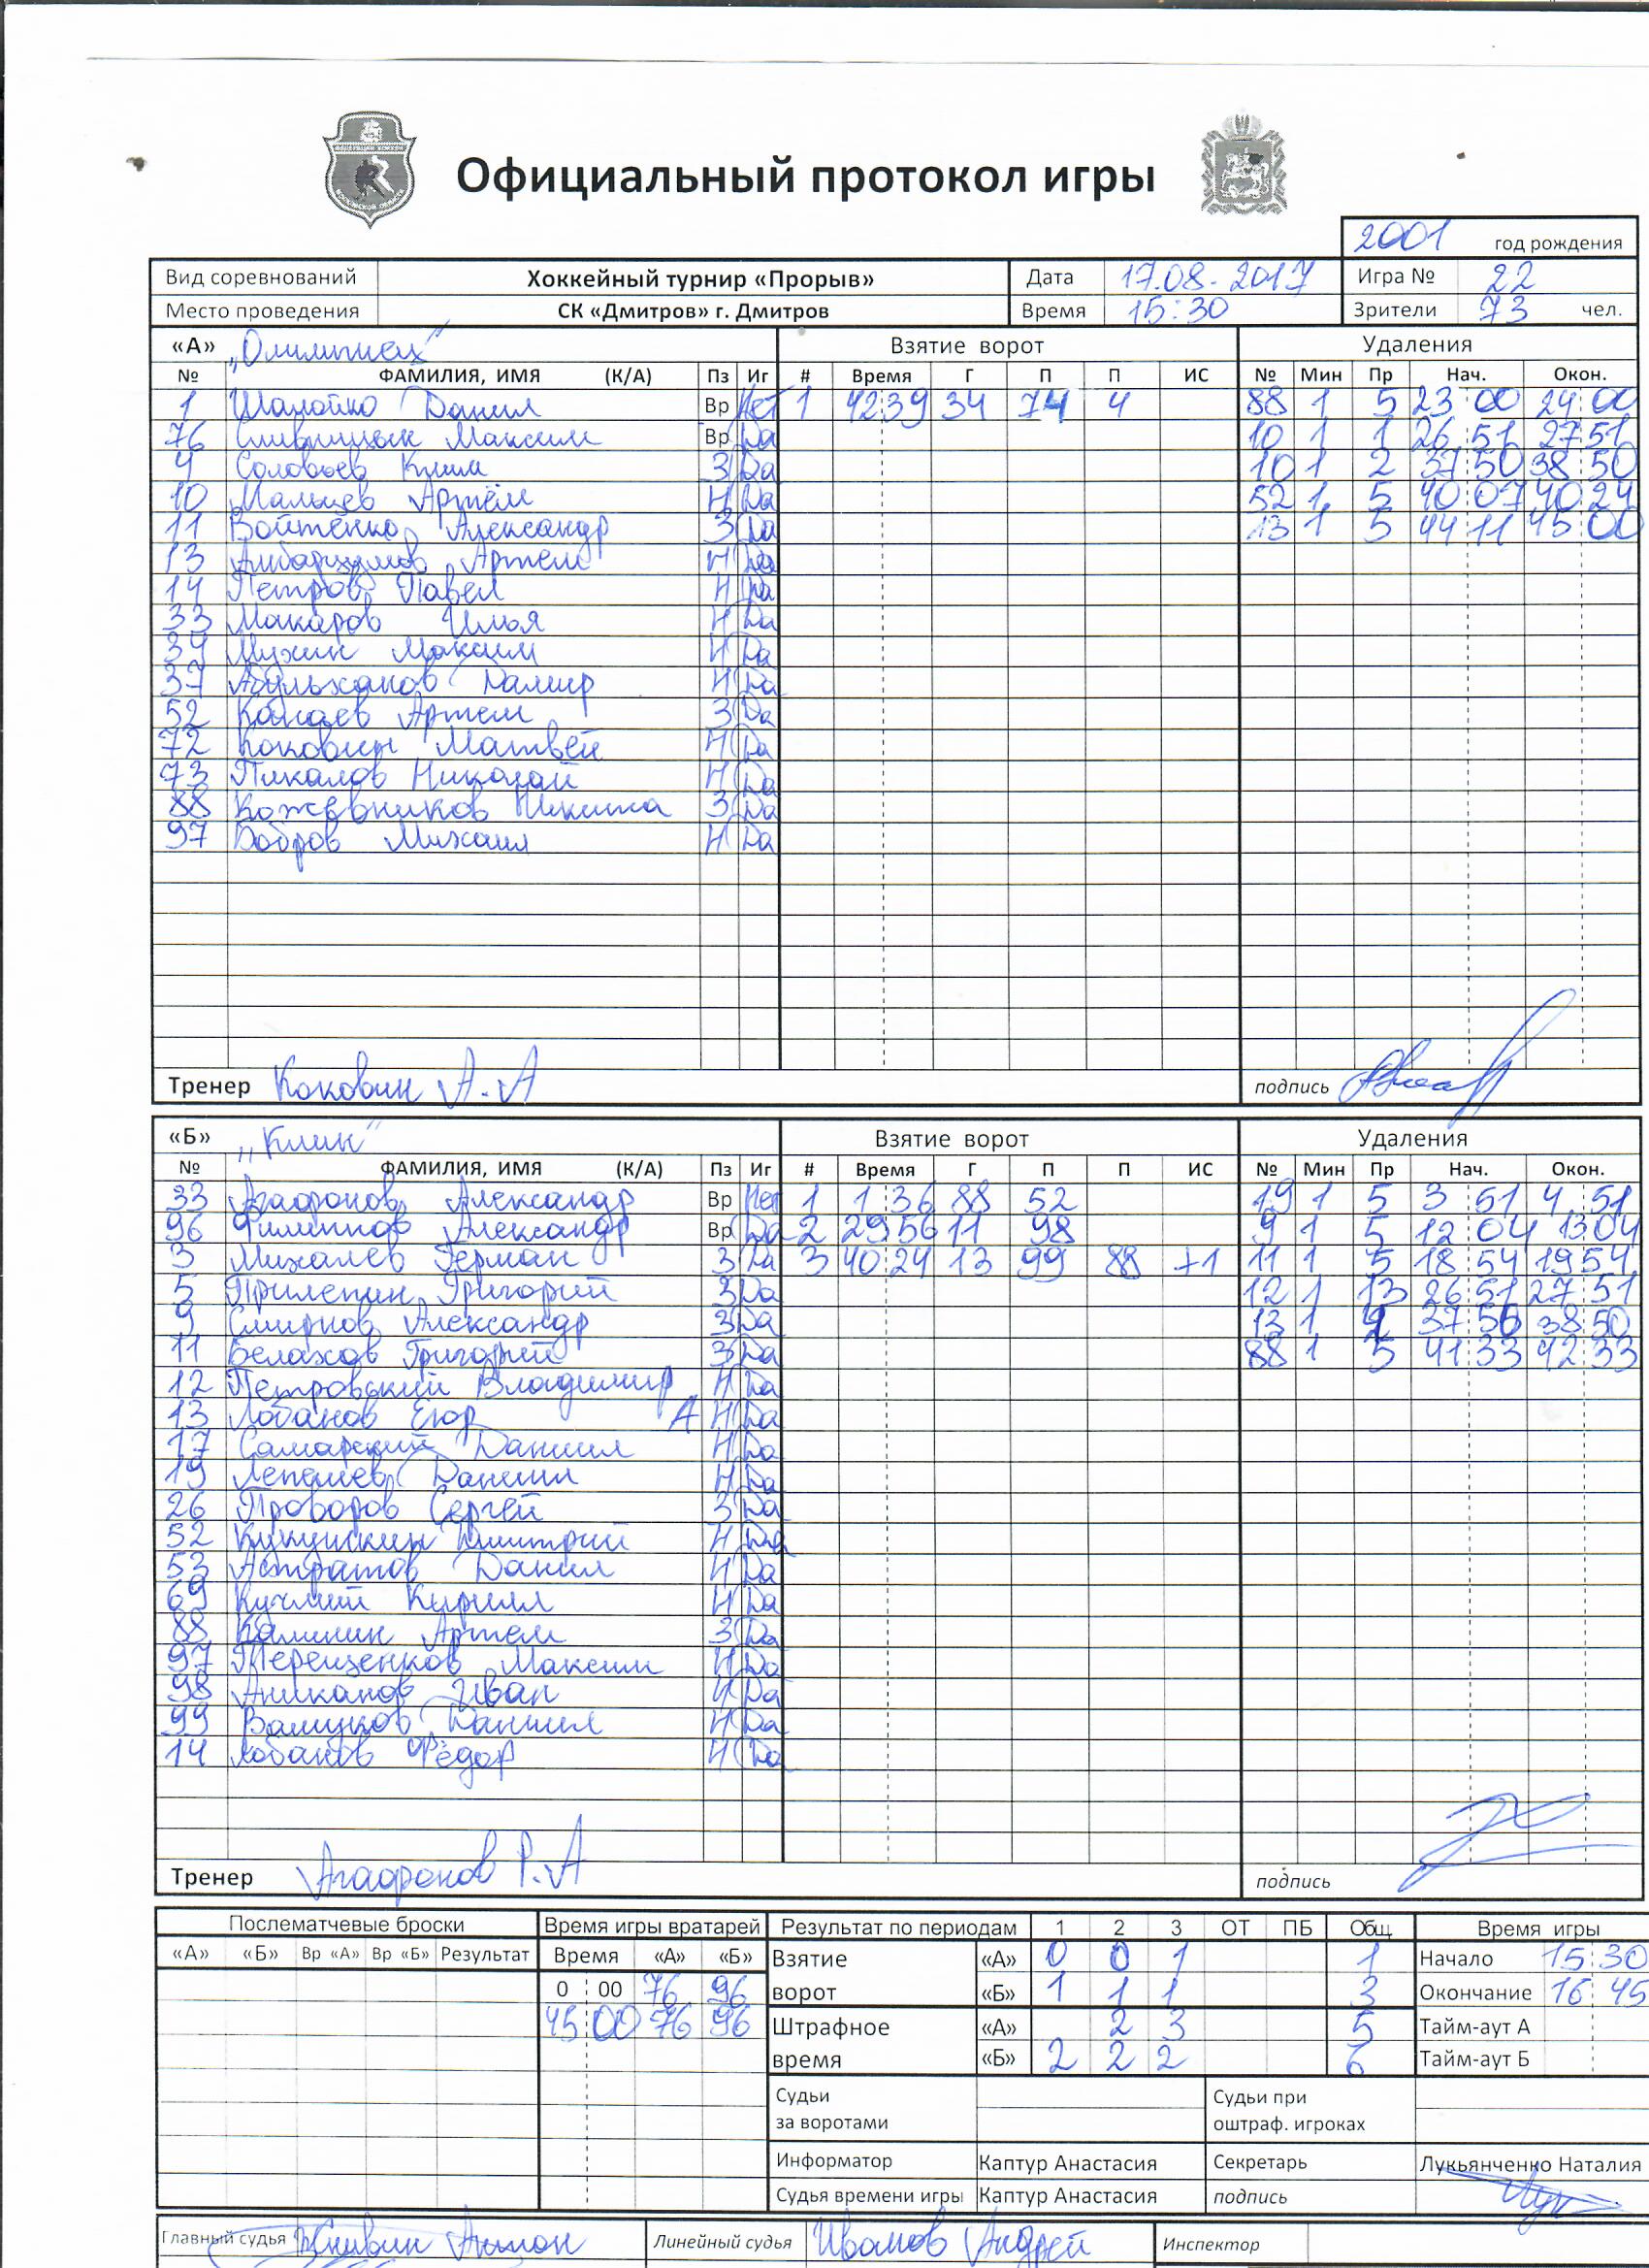 Официальный протокол игры
2001 год рождения
Вид соревнований Хоккейный турнир «Прорыв» Дата 17.08.2017 Игра № 22
Место проведения СК «Дмитров» г. Дмитров Время 15:30 Зрители 73 чел.
«А» Взятие ворот Удаления
№ ФАМИЛИЯ, ИМЯ (К/А) Пз Иг # Время Г П П ИС № Мин Пр Нач. Окон.
1 Данил Вр Нет 1 42 39 34 74 4 88 1 5 23 00 24 00
76 Максим Вр Да 10 1 1 26 51 27 51
4 Соловьев Клим З Да 10 1 2 37 50 38 50
10 Мальцев Артём Н Да 52 1 5 40 07 40 24
11 Войтенко Александр З Да 13 1 5 44 11 45 00
13 Амбарцумов Артем Н Да
14 Петров Павел Н Да
33 Макаров Илья Н Да
34 Мухин Максим Н Да
37 Абульханов Дамир Н Да
52 Артем З Да
72 Коковин Матвей Н Да
73 Пикалов Николай Н Да
88 Кожевников Никита З Да
97 Бобров Михаил Н Да
Тренер Коковин А.А подпись
«Б» "Клин" Взятие ворот Удаления
№ ФАМИЛИЯ, ИМЯ (К/А) Пз Иг # Время Г П П ИС № Мин Пр Нач. Окон.
33 Агафонов Александр Вр Нет 1 1 36 88 52 19 1 5 3 51 4 51
96 Филиппов Александр Вр Да 2 29 56 11 98 9 1 5 12 04 13 04
3 Михалев Герман З Да 3 40 24 13 99 88 +1 11 1 5 18 54 19 54
5 Прилепин Григорий З Да 12 1 13 26 51 27 51
9 Смирнов Александр З Да 13 1 37 50 38 50
11 Белахов Григорий З Да 88 1 5 41 33 42 33
12 Петровский Владимир Н Да
13 Лобанов Егор А Н Да
17 Самарский Даниил Н Да
19 Лепешев Даниил Н Да
26 Проворов Сергей З Да
52 Кукушкин Дмитрий Н Да
53 Астратов Данил Н Да
69 Кучмий Кирилл Н Да
88 Калинин Артем З Да
97 Терещенков Максим Н Да
98 Аниканов Иван Н Да
99 Даниил Н Да
14 Лобанов Фёдор Н Да
Тренер Агафонов Р.А подпись
Послематчевые броски Время игры вратарей Результат по периодам 1 2 3 ОТ ПБ Общ Время игры
«А» «Б» Вр «А» Вр «Б» Результат Время «А» «Б» Взятие «А» 0 0 1 1 Начало 15 30
0 00 76 96 ворот «Б» 1 1 1 3 Окончание 16 45
45 00 76 96 Штрафное «А» 2 3 5 Тайм-аут А
время «Б» 2 2 2 6 Тайм-аут Б
Судьи за воротами Судьи при оштраф. игроках
Информатор Каптур Анастасия Секретарь Лукьянченко Наталия
Судья времени игры Каптур Анастасия подпись
Главный судья Антон Линейный судья Иванов Андрей Инспектор